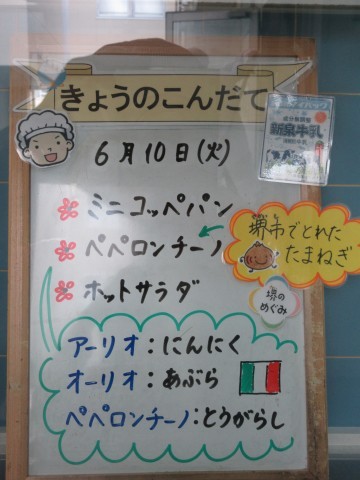 きょうのこんだて
6月10日(火)
ミニコッペパン
ペペロンチーノ
ホットサラダ
堺市でとれた
たまねぎ
堺のめぐみ
新泉牛乳
アーリオ:にんにく
オーリオ:あぶら
ペペロンチーノ:とうがらし